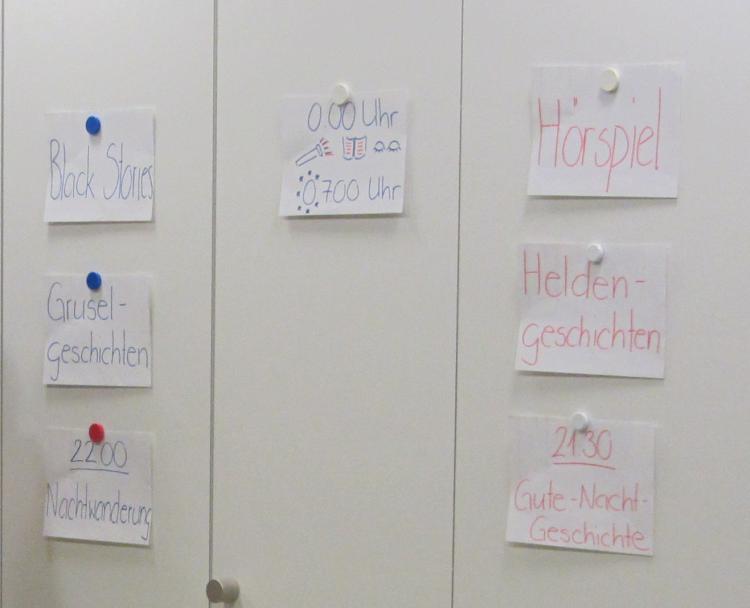 Black Stories
Grusel-
geschichten
2200
Nachtwanderung
0.00 Uhr
0.700 Uhr
Hörspiel
Helden-
geschichten
2130
Gute-Nacht-
Geschichte